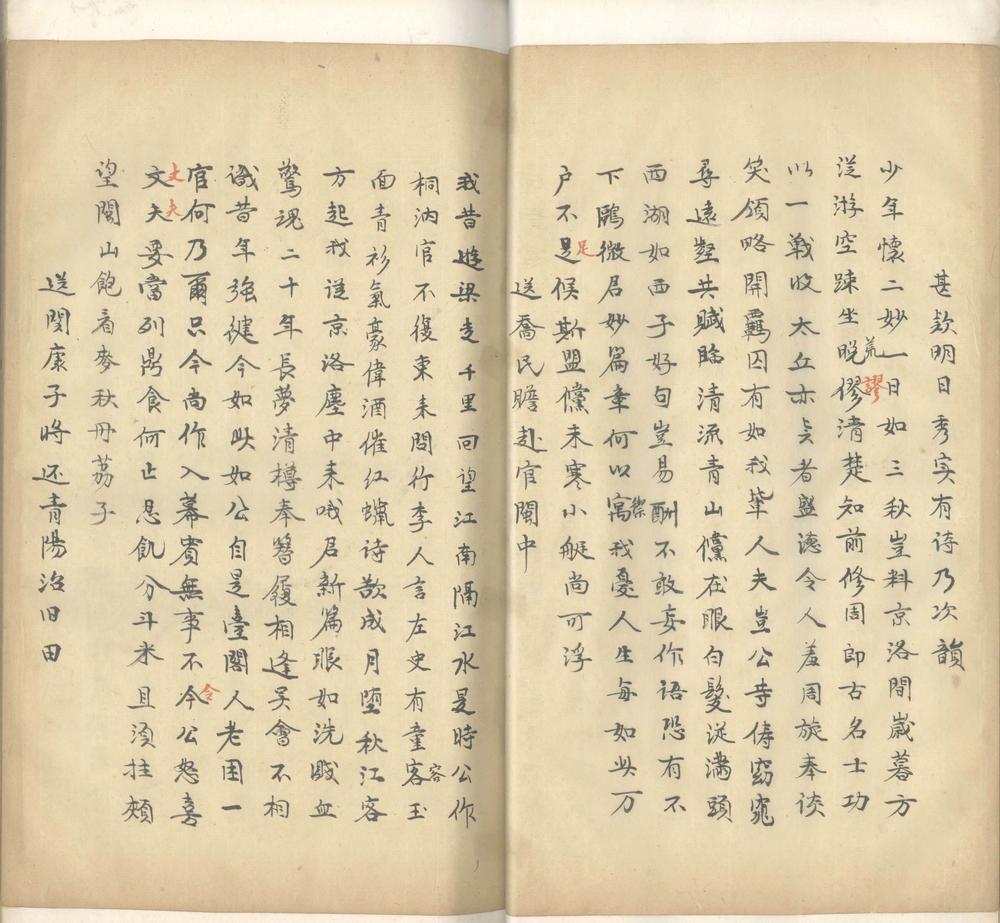 甚款明日秀实有诗乃次韻
少年懷二妙一日如三秋豈料京洛間歲暮方
従游空踈坐晚僇清楚知前修周郎古名士功
荒
謬
以一戰收太丘亦長者盛德令人羞周旋奉談
笑領略開羈囚有如我輩人夫豈公等儔窈窕
尋遠壑共賦臨清流青山儻在眼白髮従滿頭
西湖如西子好句豈易酬不敢妄作語恐有不
下鷗微君妙篇章何以寓我憂人生每如此万
禦
户不是候斯盟儻未寒小艇尚可浮
足
送喬民瞻赴官閩中
我昔遊梁走千里回望江南隔江水是時公作
桐汭官不復東来問行李人言左史有童客玉
容
面青衫氣豪偉酒催红蠟诗歌成月堕秋江客
方起我従京洛塵中来哦君新篇眼如洗戝血
驚魂二十年長夢清樽奉簪履相逢吴會不相
識昔年强健今如此如公自是臺閣人老困一
官何乃爾只今尚作入幕賓無事不今公怒喜
令
文夫要當列鼎食何止忍飢分斗米且须拄頰
丈夫
望閩山飽看麥秋丹荔子
送閔康子將还青陽治旧田